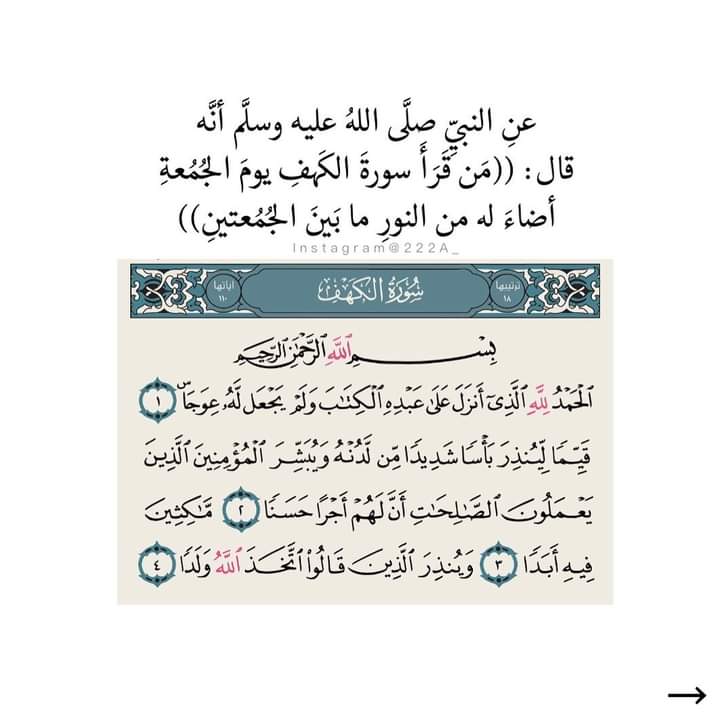 عنِ النبيِّ صلَّى اللهُ عليه وسلَّم أنَّه
قال: ((مَن قَرَأَ سورةَ الكَهفِ يومَ الجُمُعةِ
أضاءَ له من النورِ ما بَينَ الجُمُعتينِ))
Instagram@222A_
ترتيبها ١٨ سُورَةُ الكَهْفِ آياتها ١١٠
بِسْمِ ٱللَّهِ ٱلرَّحْمَٰنِ ٱلرَّحِيمِ
ٱلْحَمْدُ لِلَّهِ ٱلَّذِىٓ أَنزَلَ عَلَىٰ عَبْدِهِ ٱلْكِتَٰبَ وَلَمْ يَجْعَل لَّهُۥ عِوَجَاۜ ١
قَيِّمًا لِّيُنذِرَ بَأْسًا شَدِيدًا مِّن لَّدُنْهُ وَيُبَشِّرَ ٱلْمُؤْمِنِينَ ٱلَّذِينَ
يَعْمَلُونَ ٱلصَّٰلِحَٰتِ أَنَّ لَهُمْ أَجْرًا حَسَنًا ٢ مَّٰكِثِينَ
فِيهِ أَبَدًا ٣ وَيُنذِرَ ٱلَّذِينَ قَالُوا۟ ٱتَّخَذَ ٱللَّهُ وَلَدًا ٤